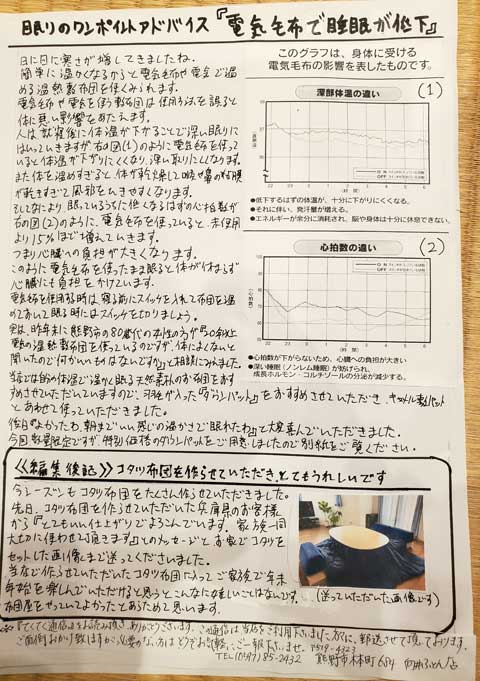 眠りのワンポイントアドバイス『電気毛布で睡眠が低下』
日に日に寒さが増してきましたね。
簡単に温かくなるからと電気毛布や電気で温
める温熱敷布団を使くみられます。
電気毛布や電気を使う敷布団は使用方法を誤ると
体に悪い影響をあたえます。
人は就寝後に体温が下がることで深い眠りに
はいっていきますが右図(1)のように電気毛布を使って
いると体温が下がりにくくなり、深い眠りにくくなります。
また体を温めすぎると体が乾燥して喉や鼻の粘膜
が乾きすぎて風邪をひきやすくなります。
そしてなにより、眠っているうちに低くなるはずの心拍数が
右の図(2)のように、電気毛布を使っていると、未使用
より15%ほど増えていきます。
つまり心臓への負担が大きくなります。
このように電気毛布を使ったまま眠ると体が休まらず
心臓にも負担をかけています。
電気毛布を使用する時は、寝る前にスイッチを入れて布団を温
めておいて眠る時にはスイッチを切りましょう。
実は、昨年末に熊野市の80歳代の女性の方が『30年以上
電気の温熱敷布団を使っているのですが、体によくないと
聞いたので何かいいものはないですか』と相談にみえました。
当店では自分の体温で温かく眠る天然素材のお布団をおす
すめさせていただいていますので、羽毛が入った『ダウンパット』をおすすめさせていただき、
とあわせて使っていただきました。
後日『よかったわ、朝までいい感じの温かさで眠れたわ』って大変喜んでいただきました。
今回数量限定ですが、特別価格のダウンパットをご用意しましたので別紙をご覧ください。
このグラフは、身体に受ける
電気毛布の影響を表したものです。
深部体温の違い
(1)
●低下するはずの体温が、十分に下がりにくくなる。
●それに伴い、発汗量が増える。
●エネルギーが余分に消耗され、脳や身体は十分に休息できない。
心拍数の違い
(2)
●心拍数が下がらないため、心臓への負担が大きい
●深い睡眠(ノンレム睡眠)が妨げられ、
成長ホルモン・コルチゾールの分泌が減少する。
《編集後記》コタツ布団を作らせていただき、とてもうれしいです
今シーズンもコタツ布団をたくさん作らせていただきました。
先日、コタツ布団を作らせていただいた兵庫県のお客様
から『とてもいい仕上がりでよろこんでいます。家族一同
大切に使わせて頂きます』とのメッセージと、お家でコタツを
セットした画像まで送ってくださいました。
当店で作らせていただいたコタツ布団に入ってご家族で年末
年始を楽しんでいただけると思うとこんなにな嬉しいことはないです。
布団屋をやっていてよかったとあらためて思います。
(送っていただいた画像です)
TEL(0597)85-2432
〒519-4323
熊野市木本町684